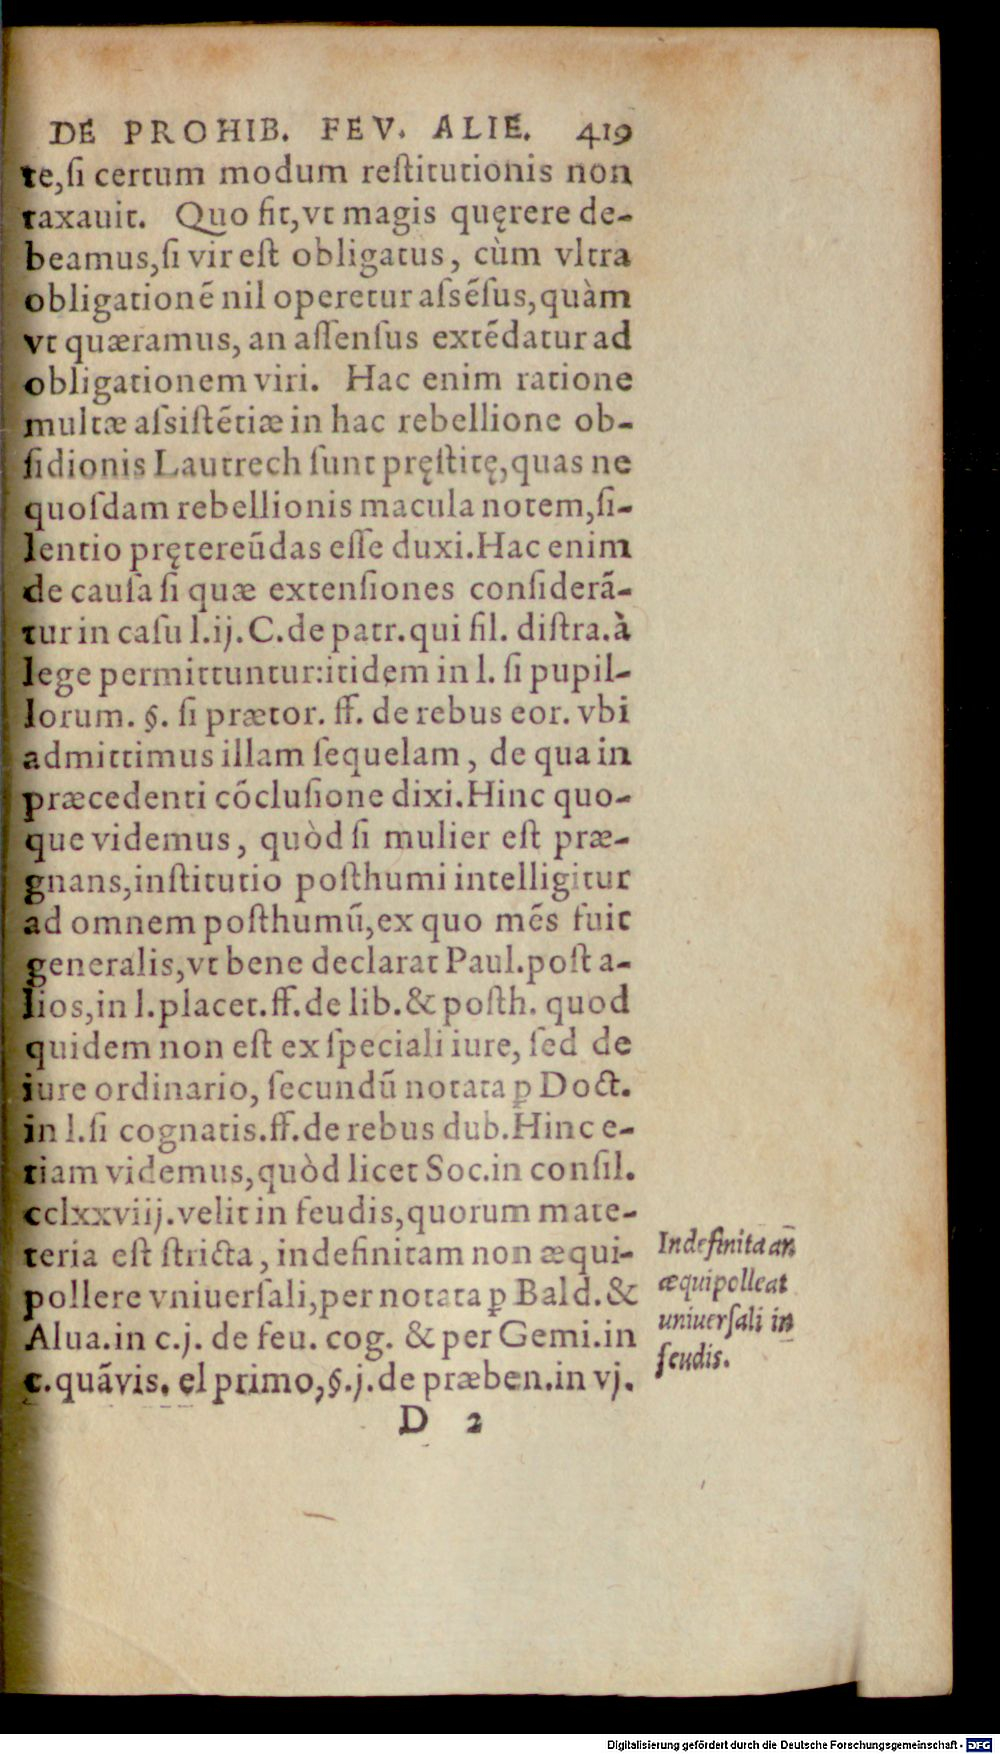 DE PROHIB. FEV. ALIE. 419
te,ſi certum modum reſtitutionis non
taxauit. Quo fit,vt magis quęrere de-
beamus,ſi vir eſt obligatus, cùm vltra
obligationē nil operetur aſsēſus,quàm
vt quæramus, an aſſenſus extēdatur ad
obligationem viri. Hac enim ratione
multæ aſsiſtētiæ in hac rebellione ob-
ſidionis Lautrech ſunt pręſtitę,quas ne
quoſdam rebellionis macula notem,ſi-
lentio prętereūdas eſſe duxi.Hac enim
de cauſa ſi quæ extenſiones conſiderā-
tur in caſu l.ij.C.de patr.qui fil. diſtra.à
lege permittuntur:itidem in l. ſi pupil-
lorum. §. ſi prætor. ff. de rebus eor. vbi
admittimus illam ſequelam, de qua in
præcedenti cōcluſione dixi.Hinc quo-
que videmus, quòd ſi mulier eſt præ-
gnans,inſtitutio poſthumi intelligitur
ad omnem poſthumū,ex quo mēs fuit
generalis,vt bene declarat Paul.poſt a-
lios,in l.placet.ff.de lib.& poſth. quod
quidem non eſt ex ſpeciali iure, ſed de
iure ordinario, ſecundū notata ꝑ Doct.
in l.ſi cognatis.ff.de rebus dub.Hinc e-
tiam videmus,quòd licet Soc.in conſil.
cclxxviij.velit in feudis,quorum mate-
teria eſt ſtricta, indefinitam non æqui-
pollere vniuerſali,per notata ꝑ Bald.&
Alua.in c.j. de feu. cog. & per Gemi.in
c.quāvis. el primo,§.j.de præben.in vj.
D 2
Indefinita an
æquipolleat
uniuerſali in
feudis.
Digitalisierung gefördert durch die Deutsche Forschungsgemeinschaft - DFG